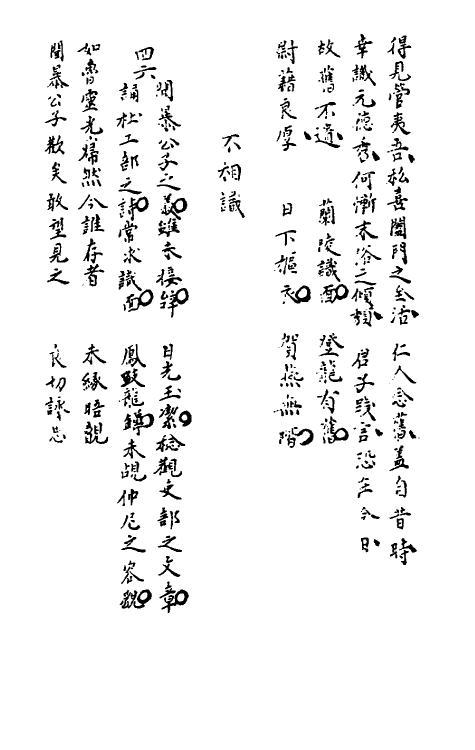 得見管夷吾私喜闔門之全活 仁人念舊蓋自昔時
幸識元德秀何慚末俗之傾頹 君子踐言恐在今日
故舊不遺 蘭陵識面 登龍有舊
尉藉良厚 日下摳衣 賀燕無階
不相識
四六
聞暴公子之義雖未接 日光玉潔稔觀吏部之文章
誦杜工部之詩常求識面 鳳 龍 未覩仲尼之容
如魯靈光巋然今誰存者 未緣晤覿
聞暴公子 矣敢望見之 良切詠